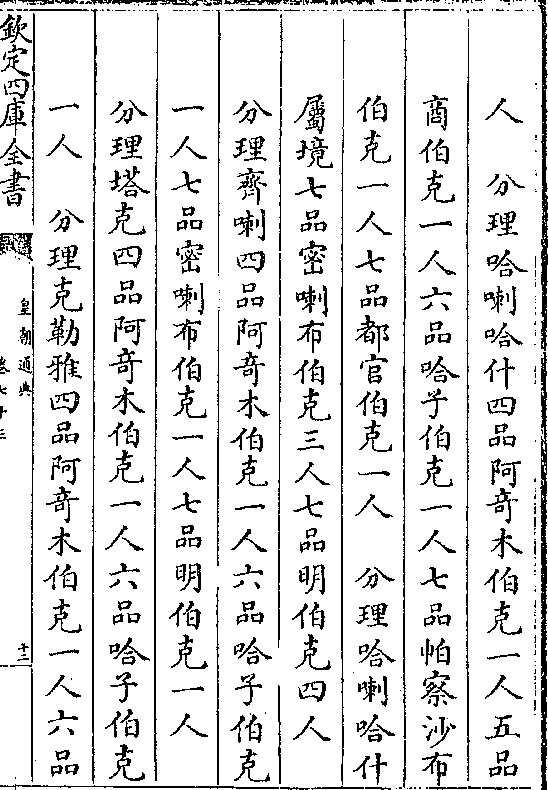 人　分理哈喇哈什四品阿奇木伯克一人五品
商伯克一人六品哈子伯克一人七品帕察沙布
伯克一人七品都官伯克一人　分理哈喇哈什
屬境七品密喇布伯克三人七品明伯克四人
分理齊喇四品阿奇木伯克一人六品哈子伯克
一人七品密喇布伯克一人七品明伯克一人
分理塔克四品阿奇木伯克一人六品哈子伯克
一人　分理克勒雅四品阿奇木伯克一人六品
欽定四庫全書
皇朝通典
卷七十三
十二